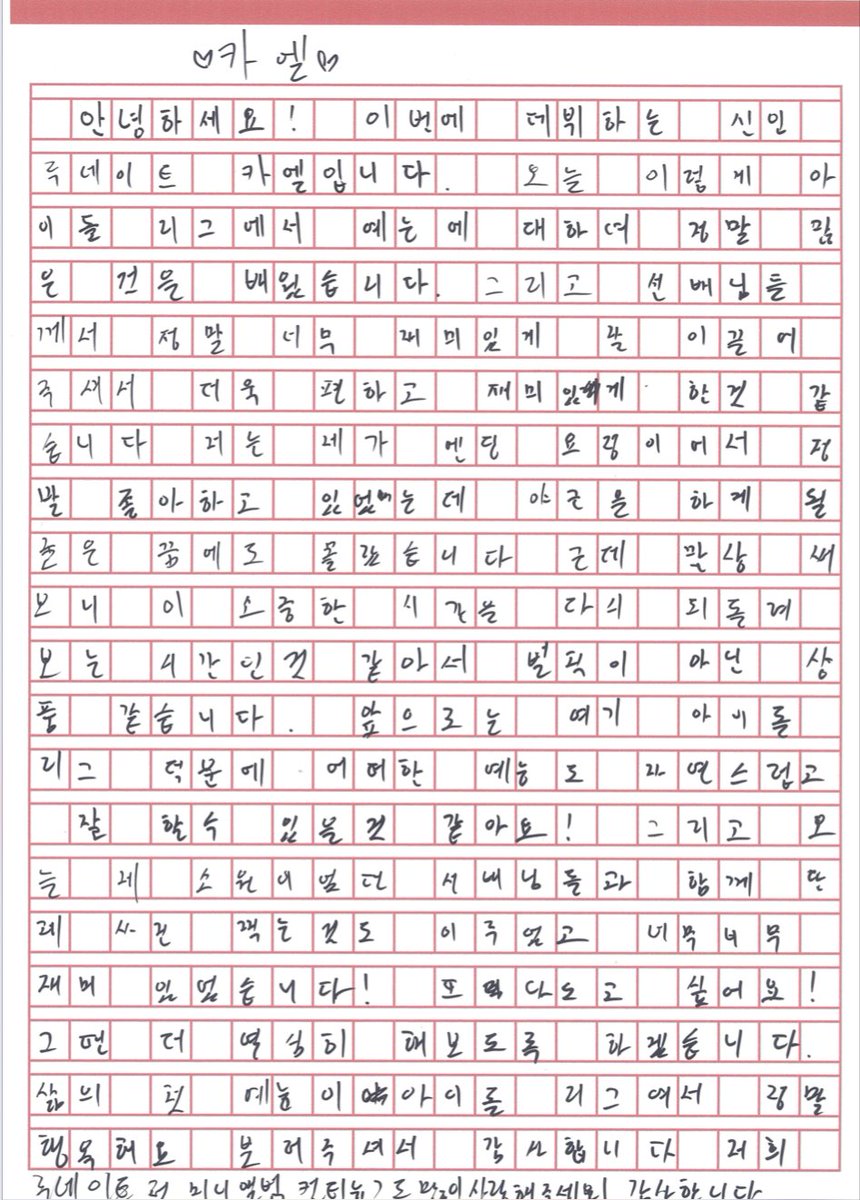 ♡카엘♡
안녕하세요! 이번에 데뷔하는 신인
루네이트 카엘입니다. 오늘 이렇게 아
이돌 리그에서 예능에 대하여 정말 많
은 것을 배웠습니다. 그리고 선배님들
께서 정말 너무 재미있게 잘 이끌어
주셔서 더욱 편하고 재미있게 한것 같
습니다 저는 제가 엔딩 요정이어서 정
말 좋아하고 있었는데 야근을 하게 될
줄은 꿈에도 몰랐습니다 근데 막상 써
보니 이 소중한 시간을 다시 되돌려
보는 시간인것 같아서 벌칙이 아닌 상
품 같습니다. 앞으로는 여기 아이돌
리그 덕분에 어떠한 예능도 자연스럽고
잘 할수 있을것 같아요! 그리고 오
늘 제 소원이었던 선배님들과 함께 단
체 사진 찍는것도 이루었고 너무너무
재미 있었습니다! 또 나오고 싶어요!
그땐 더 열심히 해보도록 하겠습니다.
삶의 첫 예능이 아이돌 리그여서 정말
행복해요 불러주셔서 감사합니다 저희
루네이트 첫 미니앨범 컨티뉴?도 많이 사랑해주세요! 감사합니다